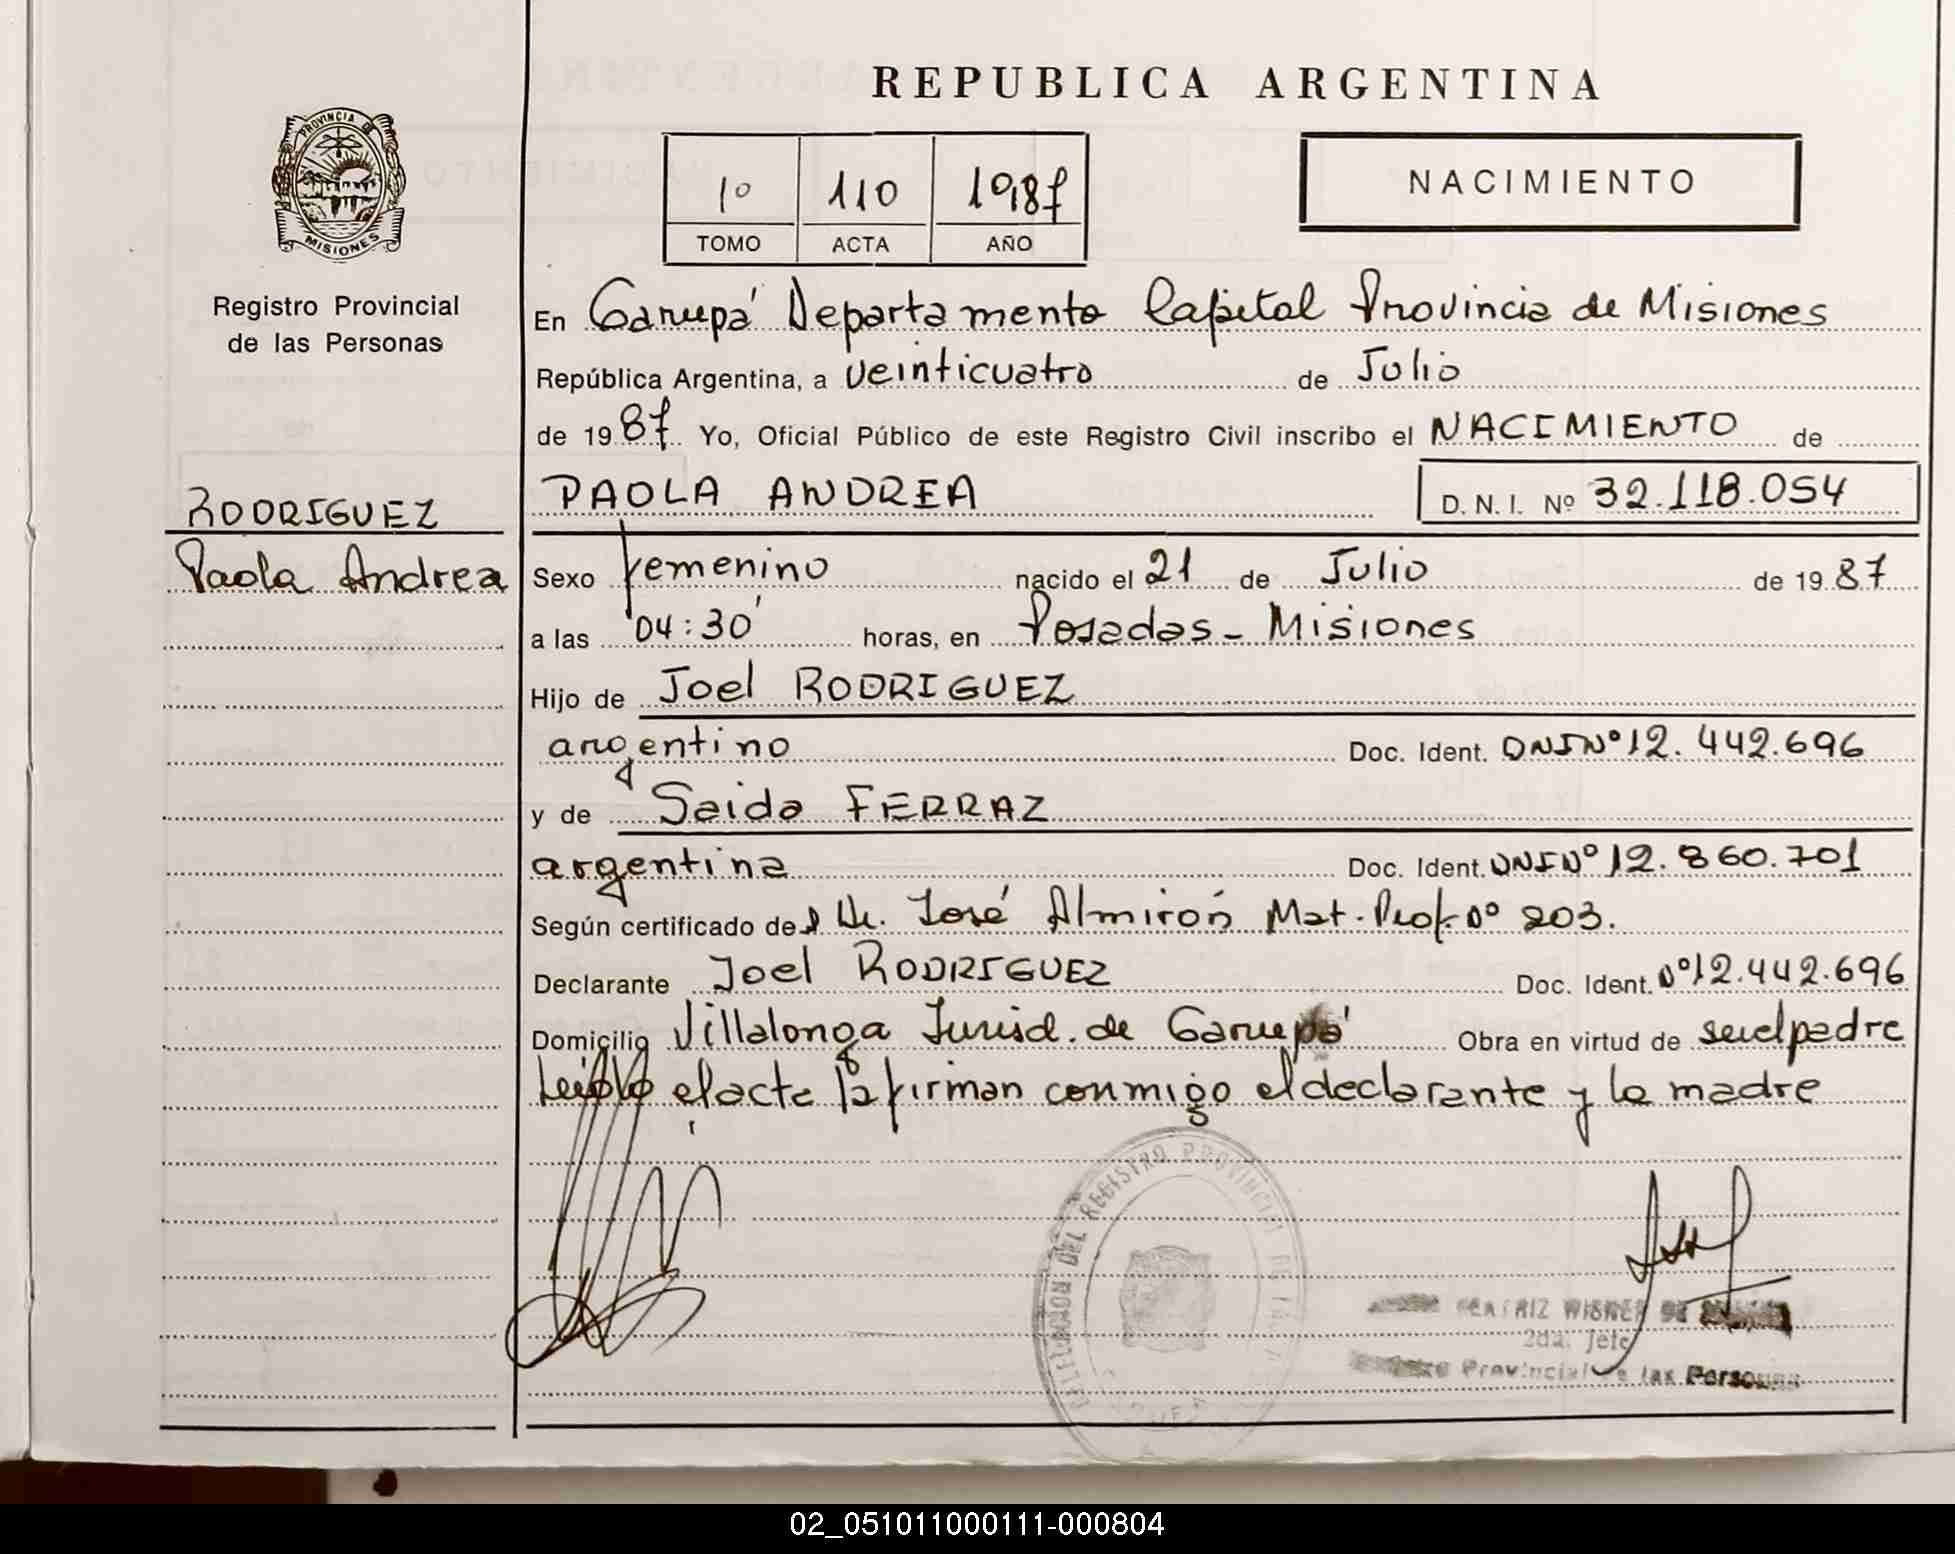 REPUBLICA ARGENTINA
PROVINCIA DE
MISIONES
Registro Provincial
de las Personas
1º 110 1987
TOMO ACTA AÑO
NACIMIENTO
En Garupá Departamento Capital Provincia de Misiones
República Argentina, a veinticuatro de Julio
de 1987 Yo, Oficial Público de este Registro Civil inscribo el NACIMIENTO de
RODRIGUEZ
Paola Andrea
PAOLA ANDREA
D. N. I. Nº 32.118.054
Sexo femenino nacido el 21 de Julio de 1987
a las 04:30' horas, en Posadas - Misiones
Hijo de Joel RODRIGUEZ
argentino Doc. Ident. DNI Nº 12.442.696
y de Saida FERRAZ
argentina Doc. Ident. DNI Nº 12.860.701
Según certificado del Dr. José Almirón Mat. Prof. Nº 203.
Declarante Joel RODRIGUEZ Doc. Ident. Nº 12.442.696
Domicilio Villalonga Jurisd. de Garupá Obra en virtud de ser el padre
Leída el acta la firman conmigo el declarante y la madre
DELEGACION DEL REGISTRO PROVINCIAL DE
BEATRIZ WISNER DE
2da. Jefe
Provincial de las Personas
02_051011000111-000804